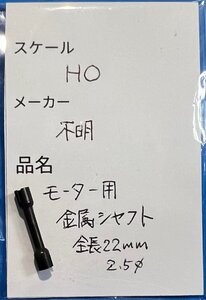 スケール
HO
メーカー
不明
品名
モーター用
金属シャフト
全長22mm
2.5φ